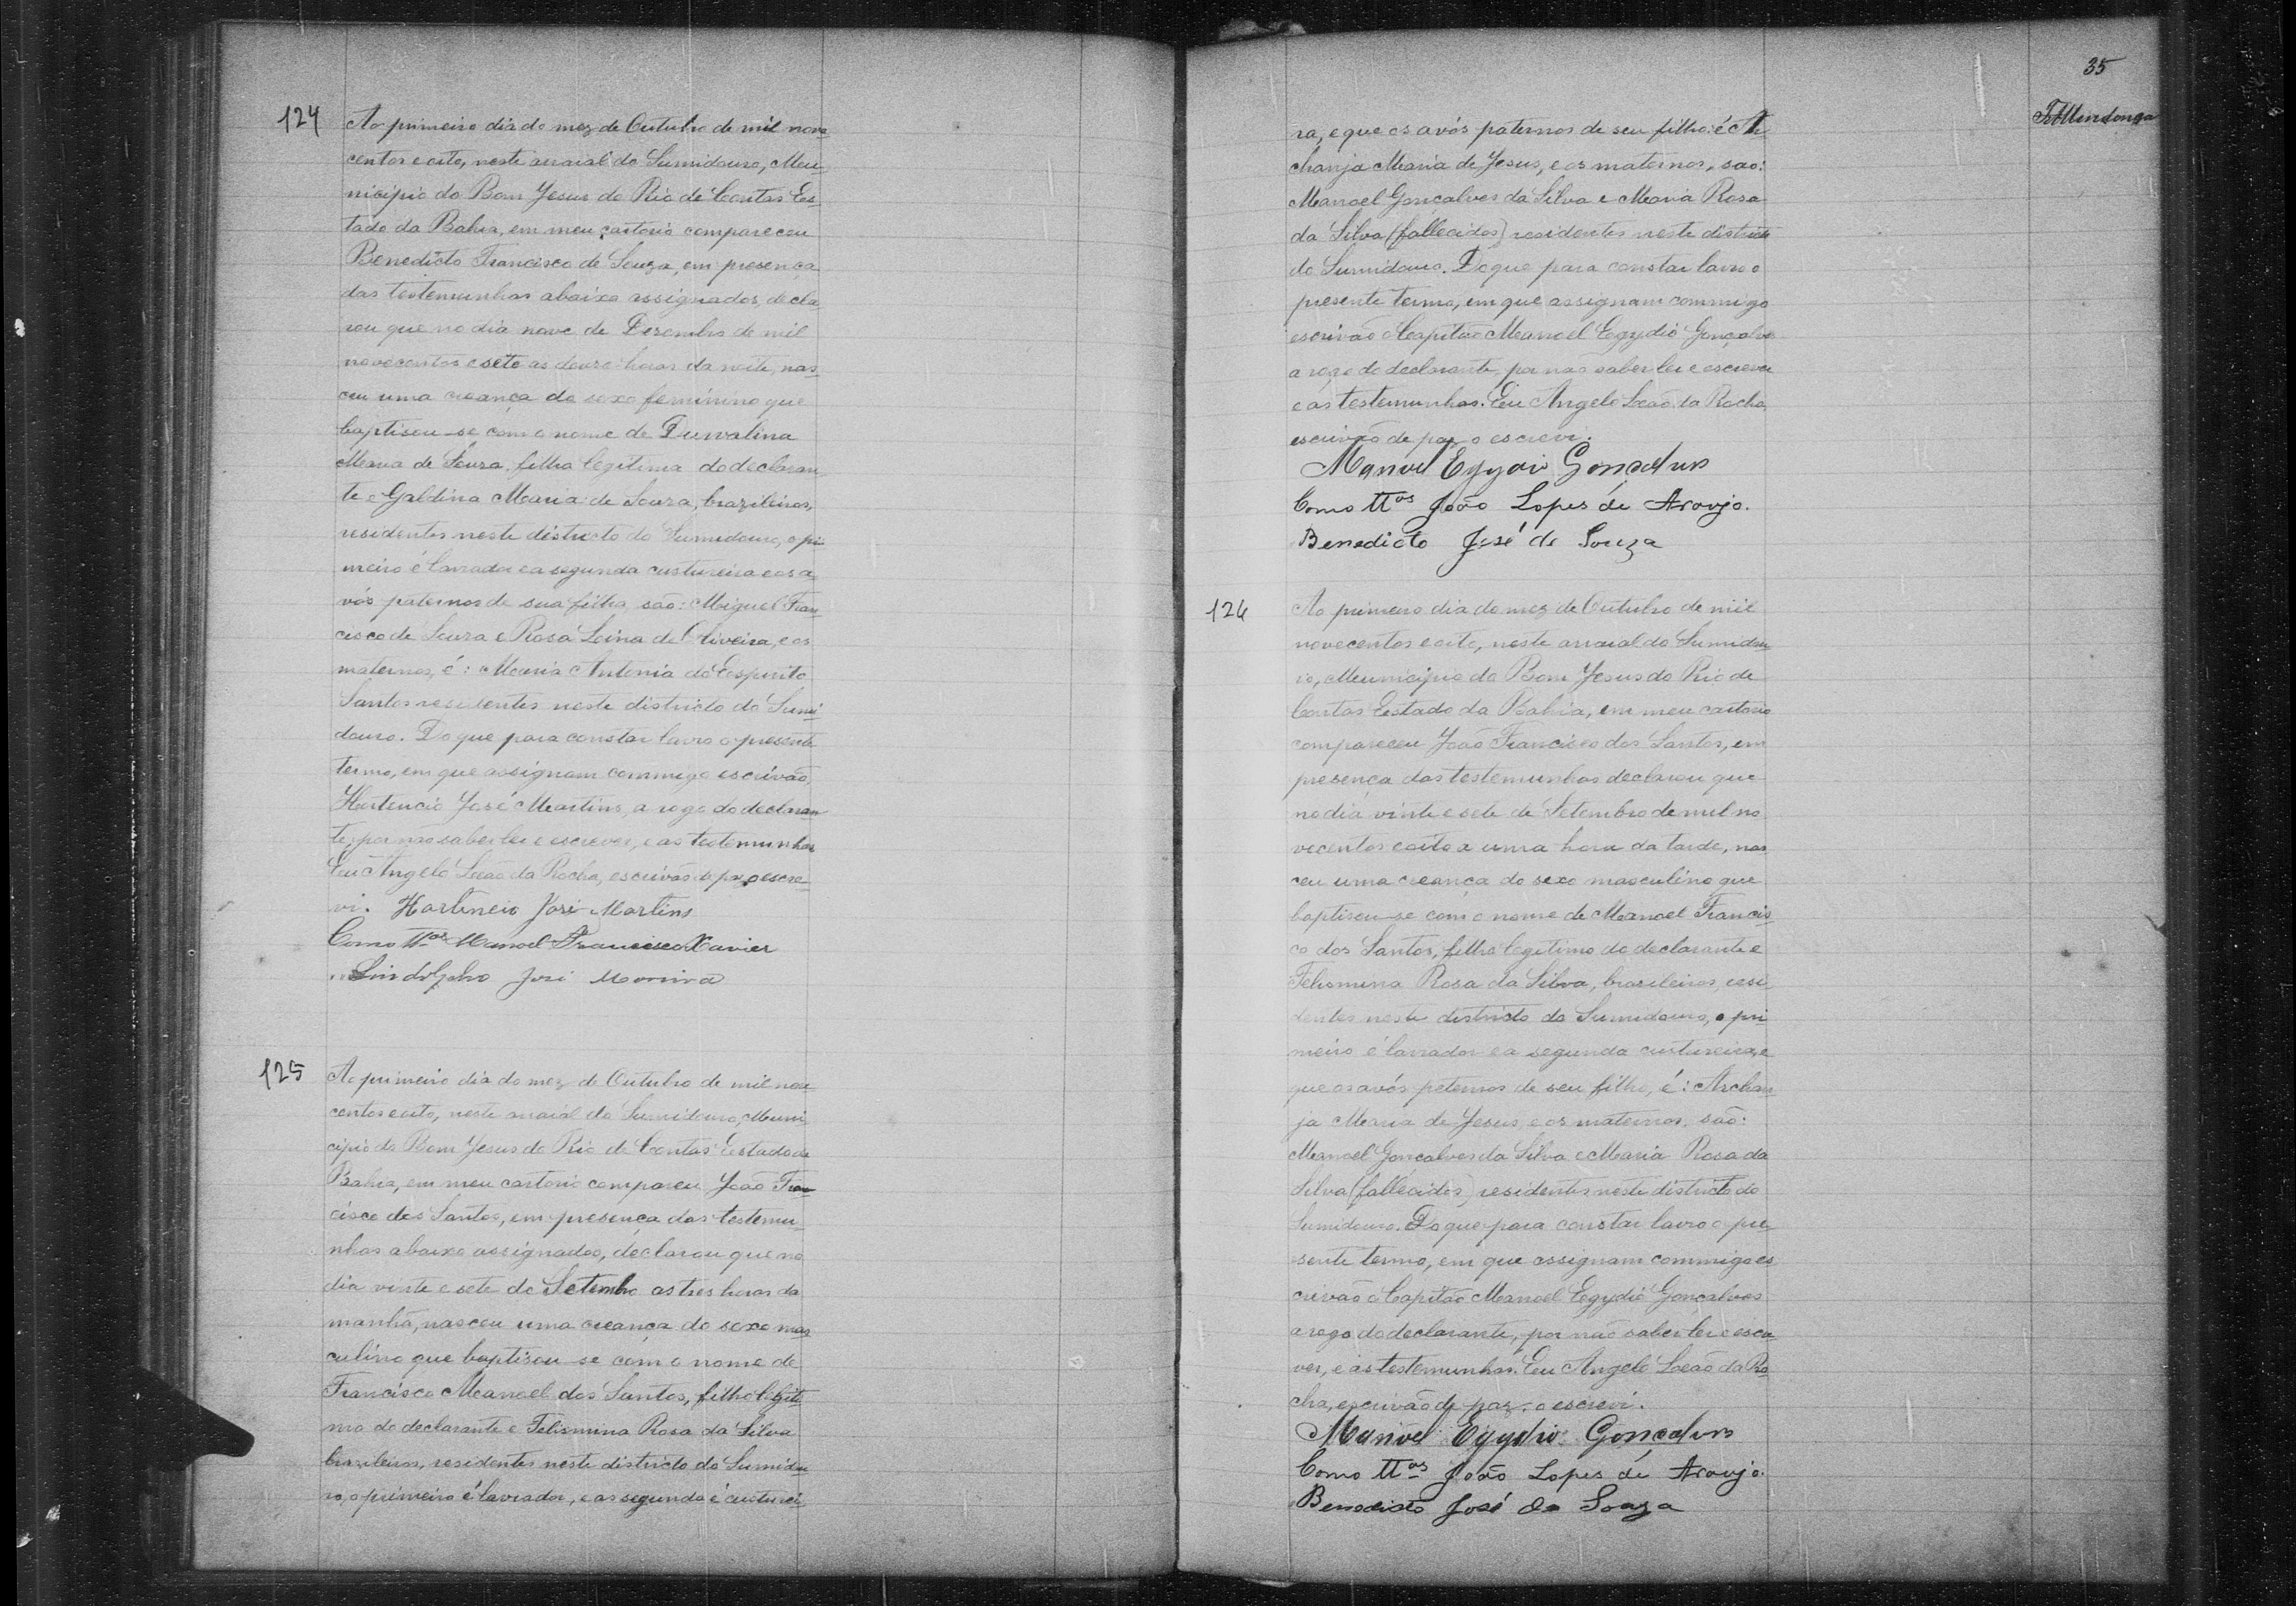 124
Ao primeiro dia do mez de Outubro de mil nove
centos e oito, neste arraial do Sumidouro, Mu
nicipio do Bom Jesus do Rio de Contas Es
tado da Bahia, em meu cartorio compareceu
Benedicto Francisco de Souza, em presença
das testemunhas abaixo assignados, decla
rou que no dia nove de Dezembro de mil
novecentos e sete as douse horas da noite, nas
ceu uma creança do sexo feminino que
baptisou-se com o nome de Durvalina
Maria de Souza, filha legitima do declaran
te e Galdina Maria de Souza, brazileiros,
residentes neste districto do Sumidouro, o pri
meiro é lavrador e a segunda custureira e os a
vós paternos de sua filha, são: Miguel Fran
cisco de Souza e Rosa Loina de Oliveira, e os
maternos, é: Maria Antonia do Espirito
Santos residentes neste districto do Sumi
douro. Do que para constar lavro o presente
termo, em que assignam commigo escrivão,
Hortencio José Martins, a rogo do declaran
te, por não saber ler e escrever, e as testemunhas
Eu Angelo Leão da Rocha, escrivão de paz o escre
vi. Hortencio José Martins
Como ttas Manoel Francisco Xavier
" Lindolpho José Moreira
125
Ao primeiro dia do mez de Outubro de mil nove
centos e oito, neste arraial do Sumidouro, Muni
cipio do Bom Jesus do Rio de Contas Estado da
Bahia, em meu cartorio compareu João Fran
cisco dos Santos, em presença das testemu
nhas abaixo assignados, declarou que no
dia vinte e sete de Setembro as tres horas da
manhã, nasceu uma creança do sexo mas
culino que baptisou-se com o nome de
Francisco Manoel dos Santos, filho legiti
mo do declarante e Felismina Rosa da Silva
brazileiros, residentes neste districto do Sumidou
ro, o primeiro é lavrador, e as segunda é custurei
35
ra, e que os avós paternos de seu filho é Ar
chanja Maria de Jesus, e os maternos, são:
Manoel Gonçalves da Silva e Maria Rosa
da Silva (fallecidos) residentes neste districto
do Sumidouro. Do que para constar lavro o
presente termo, em que assignam commigo
escrivão o Capitão Manoel Egydio Gonçalves
a rogo do declarante, por não saber ler e escrever
e as testemunhas. Eu Angelo Leão da Rocha,
escrivão de paz o escrevi.
Manoel Egydio Gonçalves
Como ttas João Lopes de Araujo.
Benedicto José de Souza
126
Ao primeiro dia do mez de Outubro de mil
novecentos e oito, neste arraial do Sumidou
ro, Municipio do Bom Jesus do Rio de
Contas Estado da Bahia, em meu cartorio
compareceu João Francisco dos Santos, em
presença das testemunhas declarou que
no dia vinte e sete de Setembro de mil no
vecentos e oito a uma hora da tarde, nas
ceu uma creança do sexo masculino que
baptisou-se com o nome de Manoel Francis
co dos Santos, filho legitimo do declarante e
Felismina Rosa da Silva, brasileiros, resi
dentes neste districto do Sumidouro, o pri
meiro é lavrador e a segunda custureira, e
que os avós peternos de seu filho, é: Archan
ja Maria de Jesus, e os maternos, são:
Manoel Gonçalves da Silva e Maria Rosa da
Silva (fallecidos) residentes neste districto do
Sumidouro. Do que para constar lavro o pre
sente termo, em que assignam commigo es
crivão o Capitão Manoel Egydio Gonçalves
a rogo do declarante, por não saber ler e escre
ver, e as testemunhas. Eu Angelo Leão da Ro
cha, escrivão de paz o escrevi.
Manoel Egydio Gonçalves
Como ttas João Lopes de Araujo.
Benedicto José de Souza